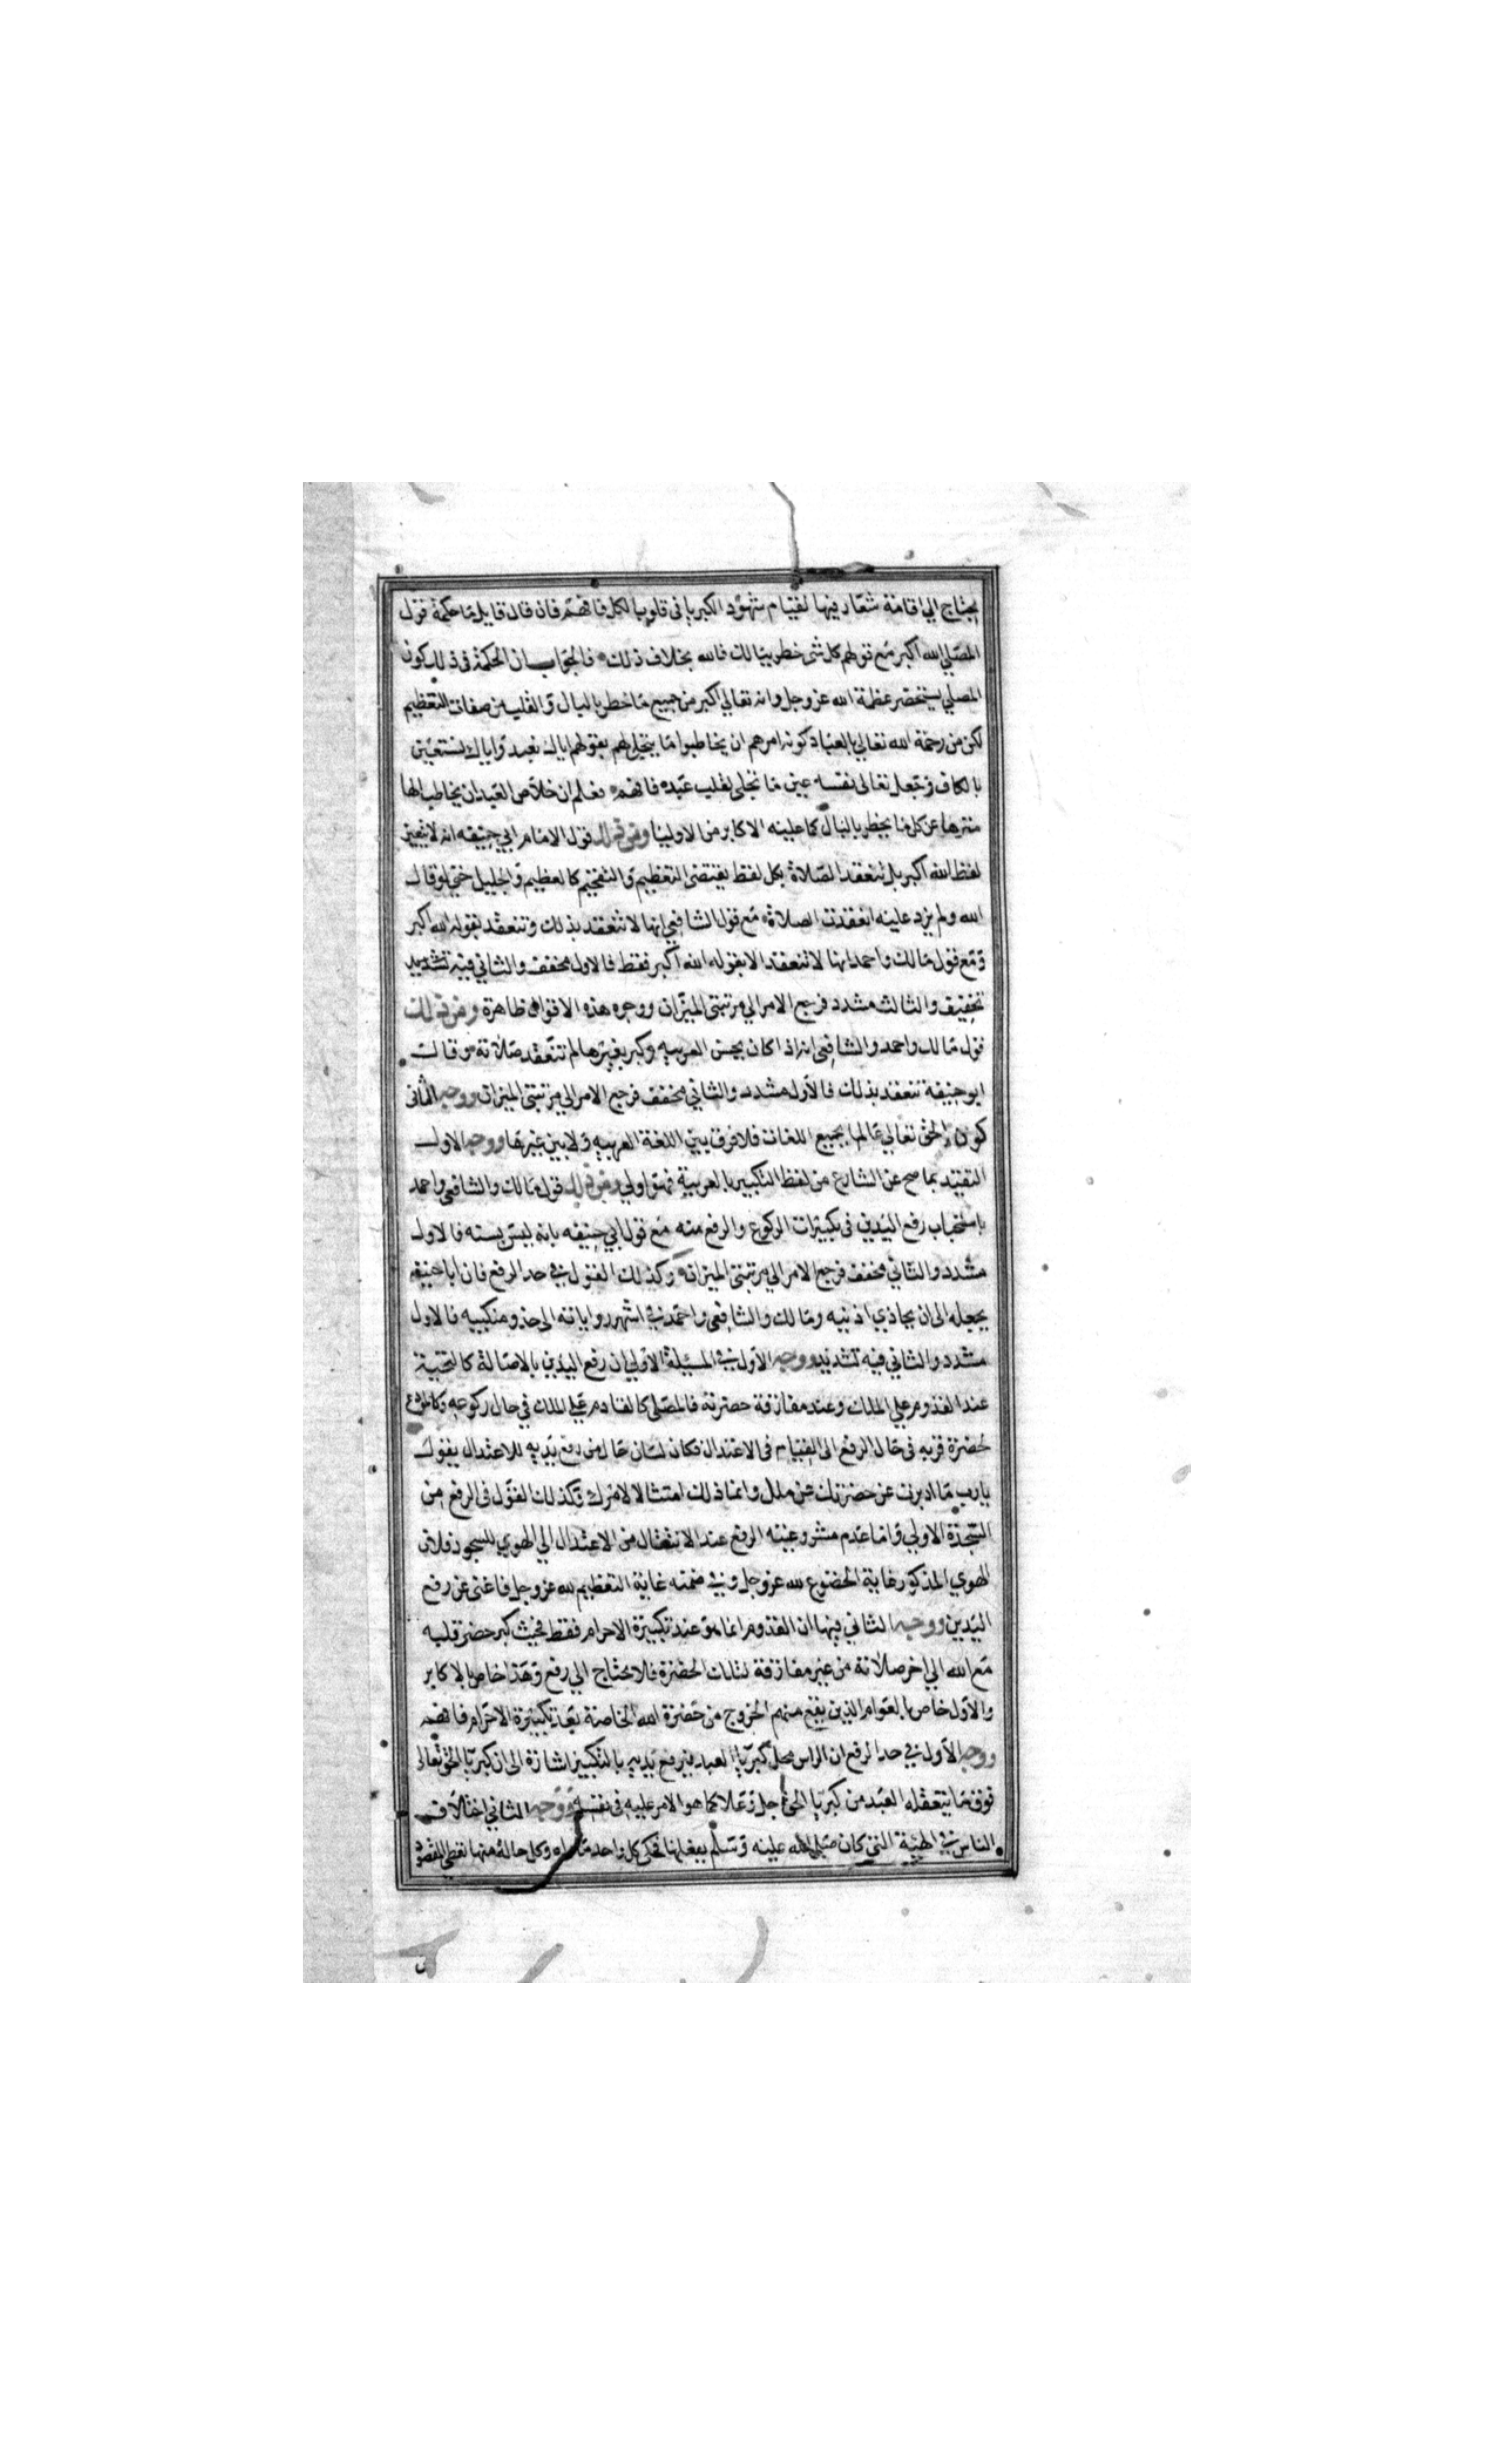 يحتاج الي اقامة شعار فيها لقيام شهود الكبريا في قلوبها لكل فافهم فان قال قايل ما حكمة قول
المصلي الله اكبر مع قولهم كل شي خطر ببالك فالله بخلاف ذلك فالجواب ان الحكمة في ذلك كون
المصلي يستحضر عظمة الله عز وجل وانه تعالي اكبر من جميع ما خطر بالبال والقلب من صفات التعظيم
لكن من رحمة الله تعالي بالعباد كونه امرهم ان يخاطبوا ما يتجلي لهم بقولهم اياك نعبد واياك نستعين
بالكاف فجعل تعالى نفسه عين ما تجلى لقلب عبده فافهم فعلم ان خلاص العبد ان يخاطب الها
منزها عن كل ما يخطر بالبال كما عليه الاكابر من الاوليا ومن ذلك قول الامام ابي حنيفه انه لا يتعين
لفظ الله اكبر بل تنعقد الصلاة بكل لفظ يقتضى التعظيم والتفخيم كالعظيم والجليل حتي لو قال
الله ولم يزد عليه انعقدت الصلاة مع قول الشافعي انها لا تنعقد بذلك وتنعقد بقوله الله اكبر
ومع قول مالك واحمد انها لا تنعقد الا بقوله الله اكبر فقط فالاول مخفف والثاني فيه تشديد
تخفيف والثالث مشدد فرجع الامر الي مرتبتي الميزان ووجوه هذه الاقوال ظاهرة ومن ذلك
قول مالك واحمد والشافعى انه اذا كان يحسن العربيه وكبر بغيرها لم تنعقد صلاته وقالت
ابو حنيفة تنعقد بذلك فالاول مشدد والثاني مخفف فرجع الامر الي مرتبتي الميزان ووجه الثانى
كون الحق تعالي عالما بجميع اللغات فلا فرق بين اللغة العربيه ولا بين غيرها ووجه الاول
التقيد بما صح عن الشارع من لفظ التكبير بالعربية فهو اولي ومن ذلك قول مالك والشافعى واحمد
باستحباب رفع اليدين في تكبيرات الركوع والرفع منه مع قول ابي حنيفه بانه ليس بسنه فالاول
مشدد والثاني مخفف فرجع الامر الي مرتبتي الميزان وكذلك القول في حد الرفع فان ابا حنيفه
يجعله الى ان يحاذي اذنيه ومالك والشافعى واحمد في اشهر رواياته الى حذو منكبيه فالاول
مشدد والثاني فيه تشديد ووجه الاول في المسيلة الاولي ان رفع اليدين بالاصالة كالتحية
عند القدوم علي الملك وعند مفارقة حضرته فالمصلى كالقادم على الملك في حال ركوعه وكالمودع
لحضرة قربه في حال الرفع الى القيام في الاعتدال فكان لسان حال من رفع يديه للاعتدال يقول
يارب ما ادبرت عن حضرتك عن ملل وانما ذلك امتثالا لامرك وكذلك القول في الرفع من
السجدة الاولي واما عدم مشروعيته الرفع عند الانتقال من الاعتدال الي الهوي للسجود فلان
الهوي المذكور غاية الخضوع لله عز وجل وفي ضمنه غاية التعظيم لله عز وجل فاغنى عن رفع
اليدين ووجه الثاني فيها ان القدوم انما هو عند تكبيرة الاحرام فقط فحيث كبر حضر قلبه
مع الله الي اخر صلاته من غير مفارقة لتلك الحضرة فلا يحتاج الي رفع وهذا خاص بالاكابر
والاول خاص بالعوام الذين يقع منهم الخروج من حضرة الله الخاصة بعد تكبيرة الاحرام فافهم
ووجه الاول في حد الرفع ان الراس محل كبريا العبد فيرفع يديه بالتكبير اشارة الى ان كبريا الحق تعالى
فوق ما يتعقله العبد من كبريا الحق جل وعلا كما هو الامر عليه في نفسه ووجه الثاني اختلاف
الناس في الهيئة التي كان صلى الله عليه وسلم يفعلها فحكى كل واحد ما راه وكل حالة منها تعطي المقصود